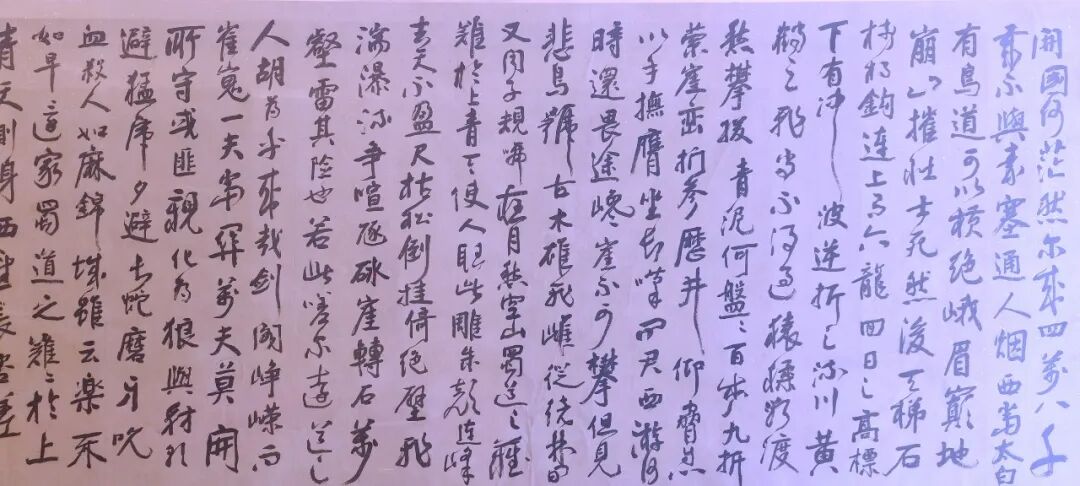 開國何茫然尔来四萬八千
歲不與秦塞通人烟西當太白
有鳥道可以橫絕峨眉巔地
崩山摧壯士死然後天梯石
棧相鈎連上有六龍回日之高標
下有冲波逆折之流川黄
鶴之飛尚不得過猿猱欲度
愁攀援青泥何盤〻百步九折
縈崖巒捫參歷井仰脅息
以手撫膺坐長嘆問君西游何
時還畏途巉崖不可攀但見
悲鳥號古木雄飛雌從繞林間
又聞子規啼夜月愁空山蜀道之難
難於上青天使人聽此雕朱顏連峰
去天不盈尺枯松倒挂倚絕壁飛
湍瀑流爭喧豗砯崖轉石萬
壑雷其險也若此嗟尔遠道之
人胡為乎来哉劍閣崢嶸而
崔嵬一夫當關萬夫莫開
所守或匪親化為狼與豺朝
避猛虎夕避長蛇磨牙吮
血殺人如麻錦城雖云樂不
如早還家蜀道之難〻於上
青天側身西望長咨嗟